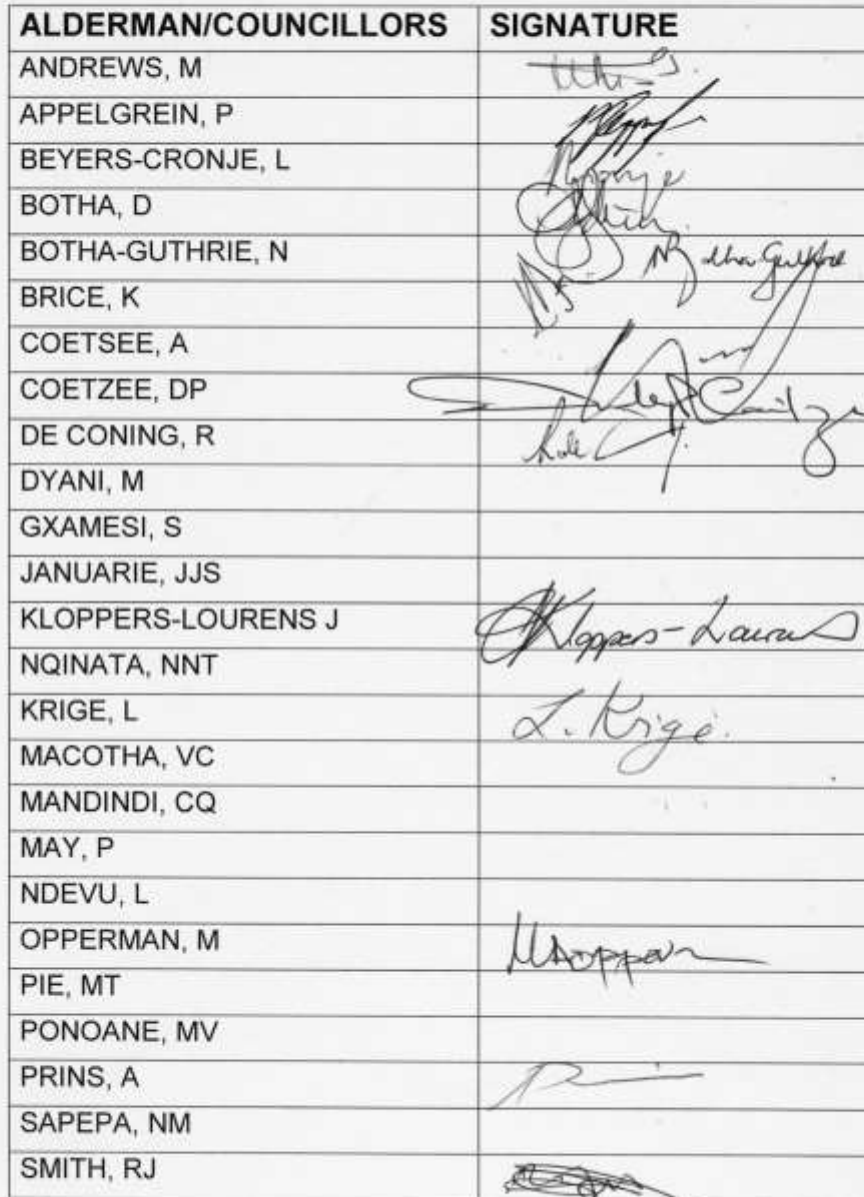 ALDERMAN/COUNCILLORS SIGNATURE
ANDREWS, M
APPELGREIN, P
BEYERS-CRONJE, L
BOTHA, D
BOTHA-GUTHRIE, N
BRICE, K
COETSEE, A
COETZEE, DP
DE CONING, R
DYANI, M
GXAMESI, S
JANUARIE, JJS
KLOPPERS-LOURENS J Kloppers-Lourens
NQINATA, NNT
KRIGE, L L. Krige.
MACOTHA, VC
MANDINDI, CQ
MAY, P
NDEVU, L
OPPERMAN, M
PIE, MT
PONOANE, MV
PRINS, A
SAPEPA, NM
SMITH, RJ